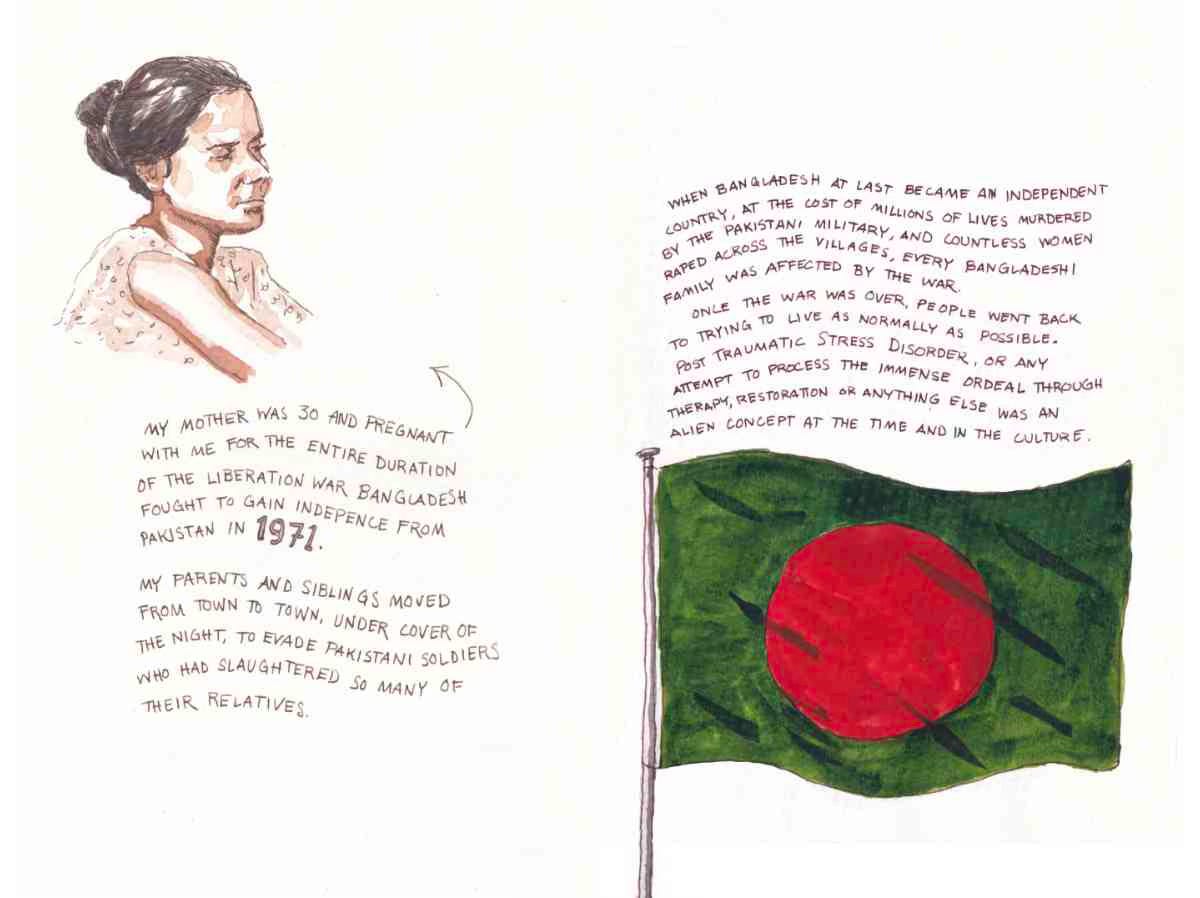 MY MOTHER WAS 30 AND PREGNANT
WITH ME FOR THE ENTIRE DURATION
OF THE LIBERATION WAR BANGLADESH
FOUGHT TO GAIN INDEPENCE FROM
PAKISTAN IN 1971.
MY PARENTS AND SIBLINGS MOVED
FROM TOWN TO TOWN, UNDER COVER OF
THE NIGHT, TO EVADE PAKISTANI SOLDIERS
WHO HAD SLAUGHTERED SO MANY OF
THEIR RELATIVES.
WHEN BANGLADESH AT LAST BECAME AN INDEPENDENT
COUNTRY, AT THE COST OF MILLIONS OF LIVES MURDERED
BY THE PAKISTANI MILITARY, AND COUNTLESS WOMEN
RAPED ACROSS THE VILLAGES, EVERY BANGLADESHI
FAMILY WAS AFFECTED BY THE WAR.
ONCE THE WAR WAS OVER, PEOPLE WENT BACK
TO TRYING TO LIVE AS NORMALLY AS POSSIBLE.
POST TRAUMATIC STRESS DISORDER, OR ANY
ATTEMPT TO PROCESS THE IMMENSE ORDEAL THROUGH
THERAPY, RESTORATION OR ANYTHING ELSE WAS AN
ALIEN CONCEPT AT THE TIME AND IN THE CULTURE.